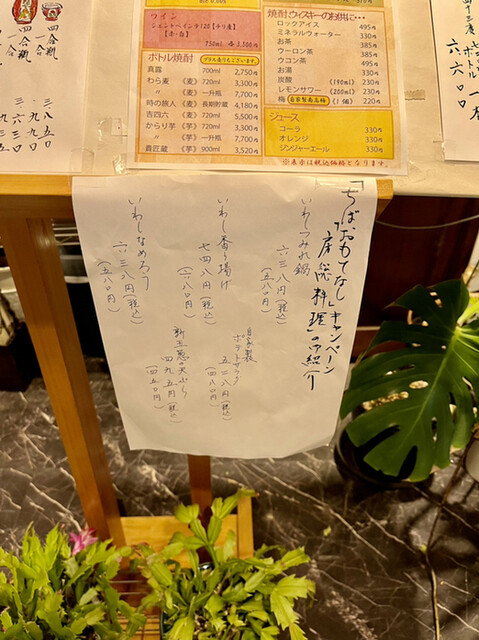 ワイン
シェントペインギ120【チリ産】
【赤・白】
750ml 各 3,500円
ボトル焼酎
プラス表もございます。
真露 700ml 2,750円
わら麦 （麦） 700ml 3,300円
〃 （麦） 一升瓶 7,700円
時の旅人 （麦） 長期貯蔵 4,180円
吉四六 （麦） 720ml 5,500円
からり芋 （芋） 720ml 3,300円
〃 （芋） 一升瓶 7,700円
貴匠蔵 （芋） 900ml 3,520円
焼酎、ウィスキーのお供に・・・
ロックアイス 495円
ミネラルウォーター 330円
お茶 385円
ウーロン茶 385円
ウコン茶 385円
お湯 330円
炭酸 （190ml） 230円
レモンサワー （200ml） 230円
梅 自家製南高梅 （1個） 220円
ジュース
コーラ 330円
オレンジ 330円
ジンジャーエール 330円
※表示は税込価格となります。
「ちばおもてなし」キャンペーン
「房総料理」の紹介
いわしつみれ鍋
六三八円（税込）
（五八〇円）
いわし香り揚げ
七四八円（税込）
（六八〇円）
いわしなめろう
六三八円（税込）
（五八〇円）
自家製
ポテトサラダ
五二八円（税込）
（四八〇円）
新玉葱の天ぷら
四九五円（税込）
（四五〇円）
四合瓶
一合
三、八五〇
四合瓶
一合